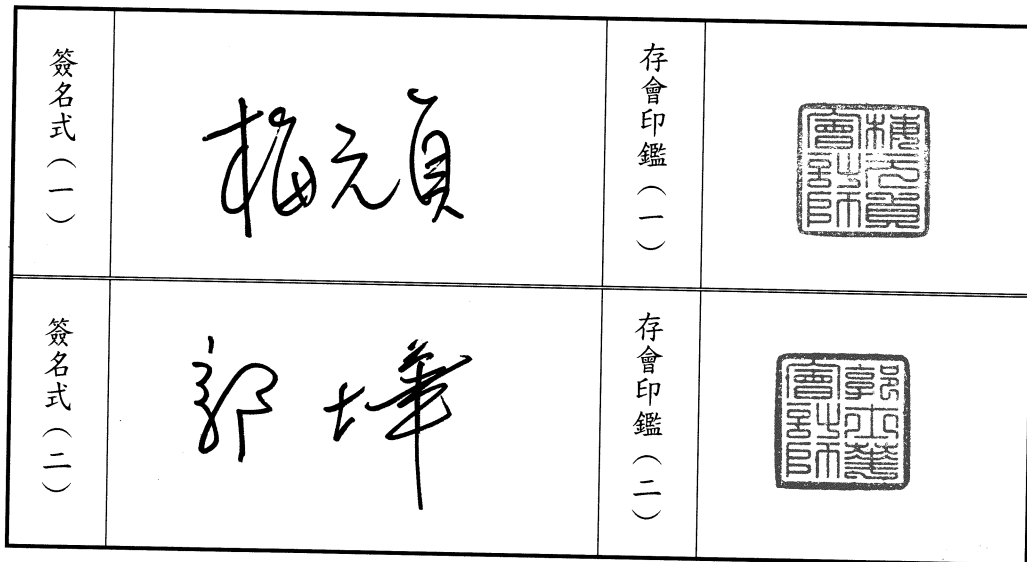 簽名式（一）
梅元貞
存會印鑑（一）
梅元貞會計師
簽名式（二）
郭士華
存會印鑑（二）
郭士華會計師